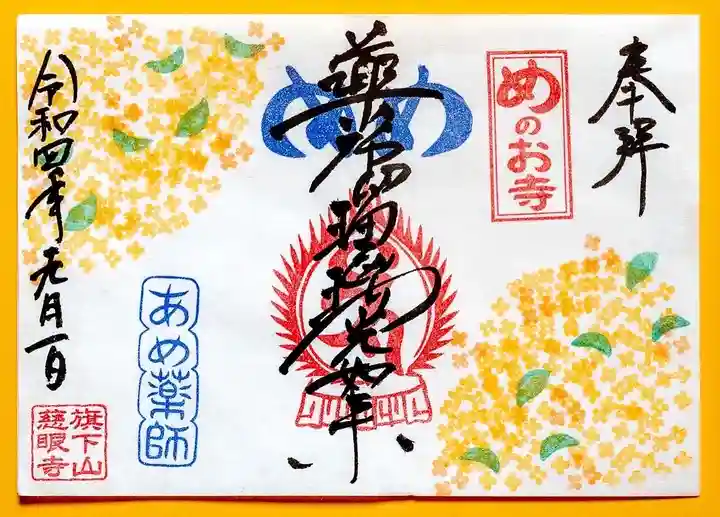 奉拝
めのお寺
め め
薬師瑠璃光如来
あめ薬師
旗下山
慈眼寺
令和四年九月一日